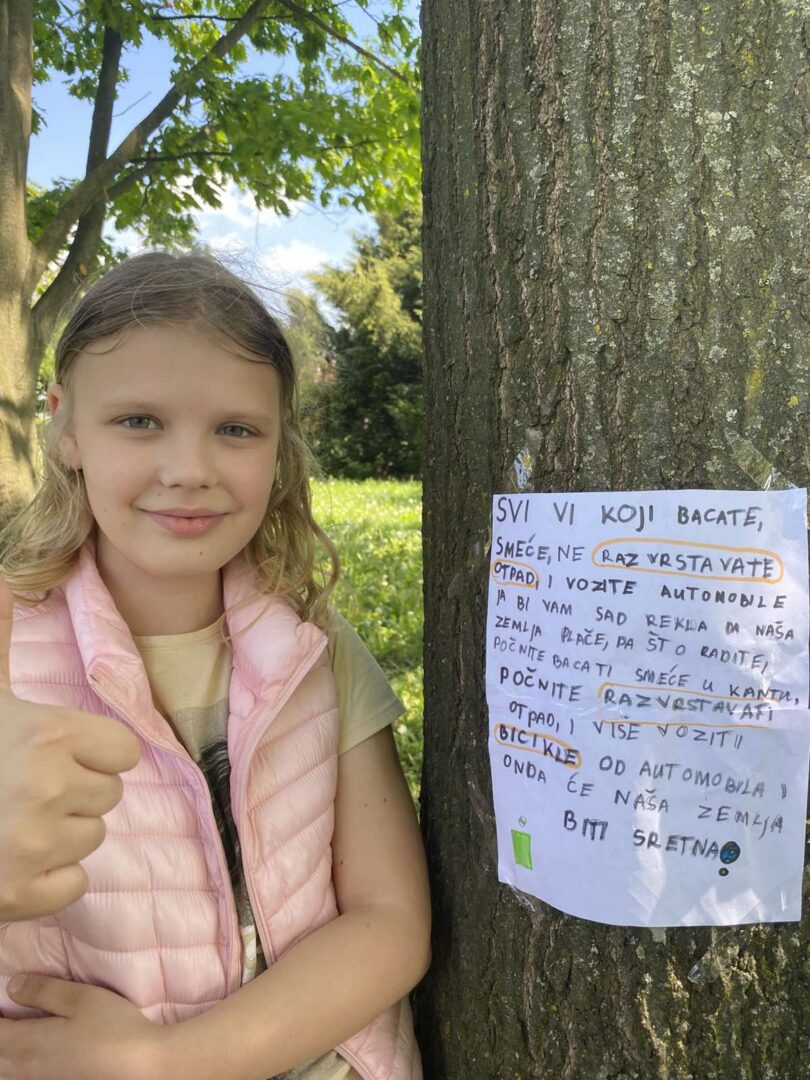 SVI VI KOJI BACATE,
SMEĆE, NE RAZVRSTAVATE
OTPAD, I VOZITE AUTOMOBILE
JA BI VAM SAD REKLA DA NAŠA
ZEMLJA PLAČE, PA ŠTO RADITE,
POČNITE BACATI SMEĆE U KANTU,
POČNITE RAZVRSTAVATI
OTPAD, I VIŠE VOZITI
BICIKLE OD AUTOMOBILA I
ONDA ĆE NAŠA ZEMLJA
BITI SRETNA